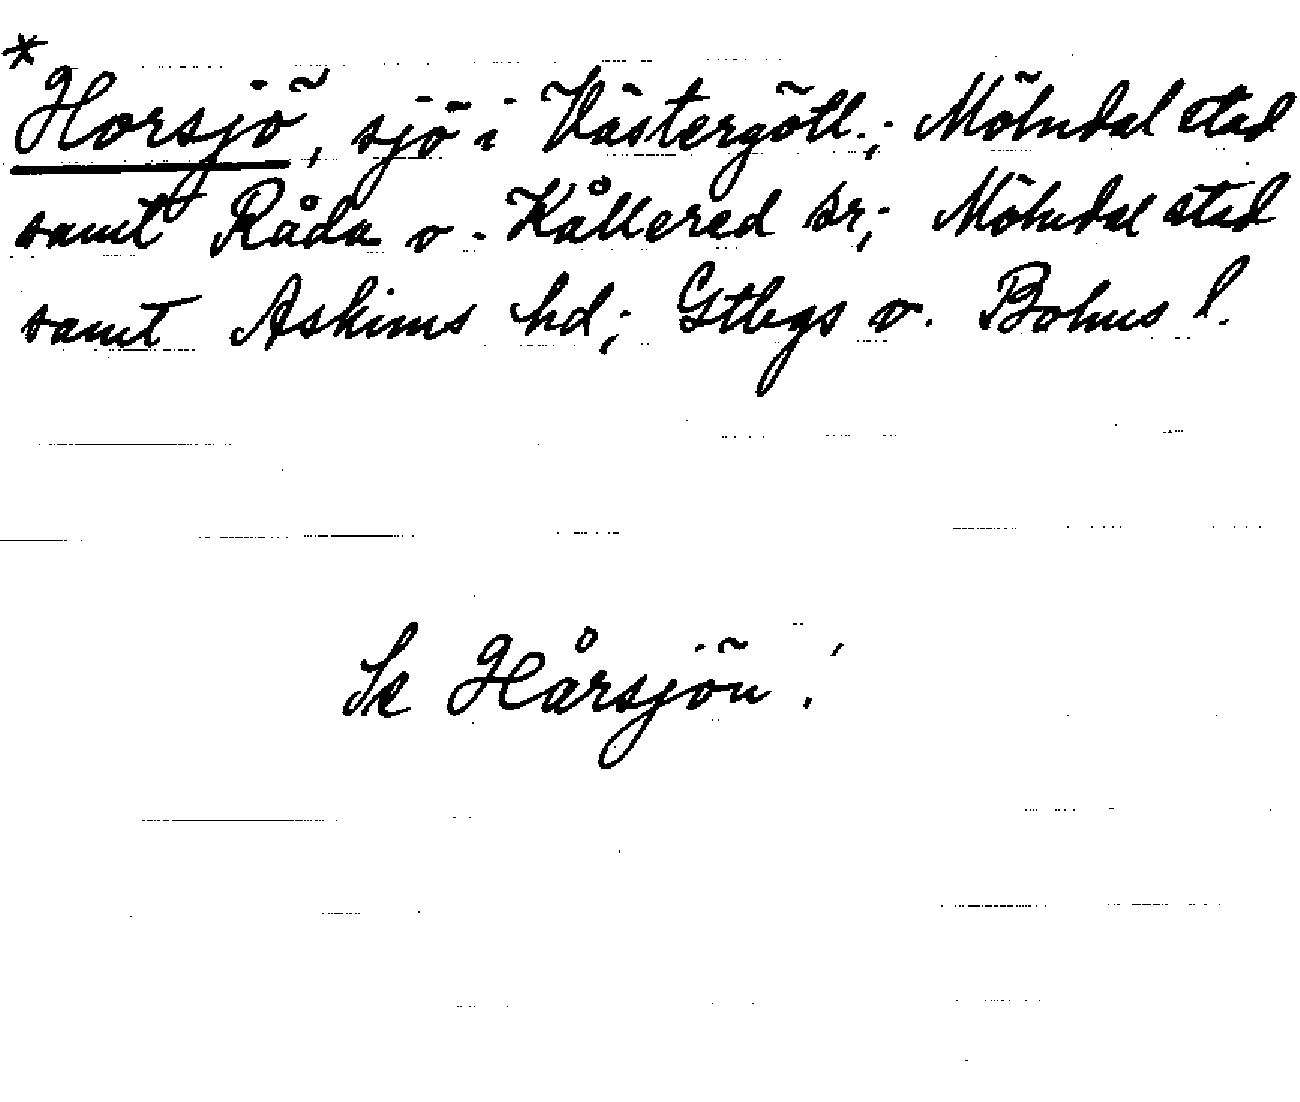 *
Horsjö, sjö i Västergötl.; Mölndal stad
samt Råda o. Kållered sr; Mölndal stad
samt Askims hd; Gtbgs o. Bohus l.
Se Hårsjön!